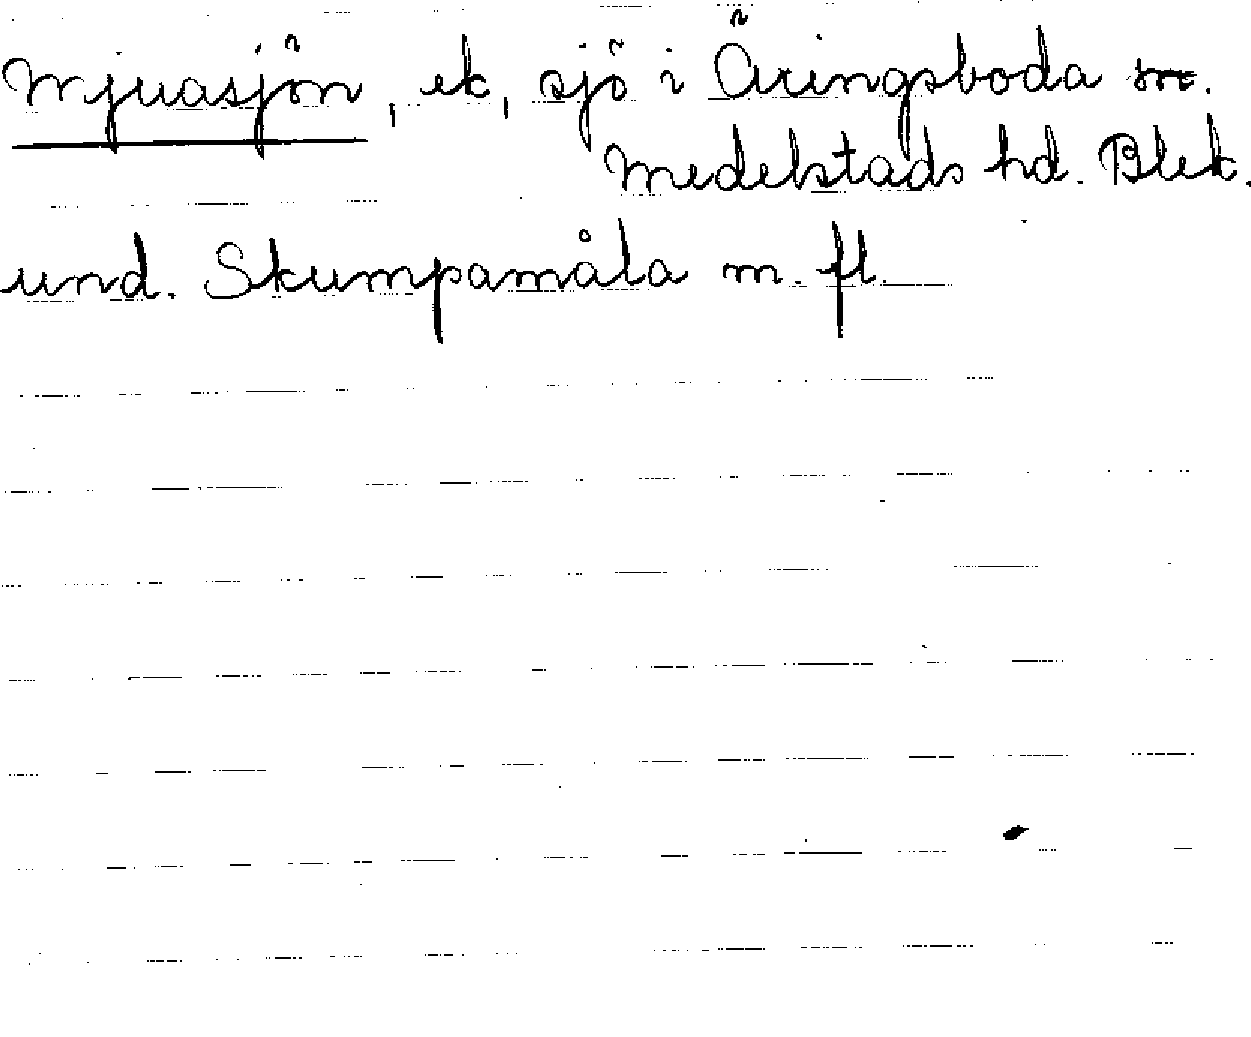 Mjuasjön, ek, sjö i Äringsboda sn.
Medelstads hd. Blek.
und. Skumpamåla m. fl.